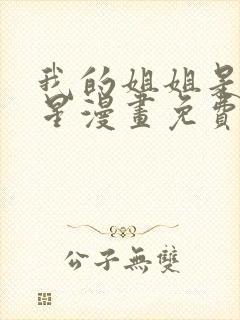 我的姐姐是
星漫畫免費
公子無雙